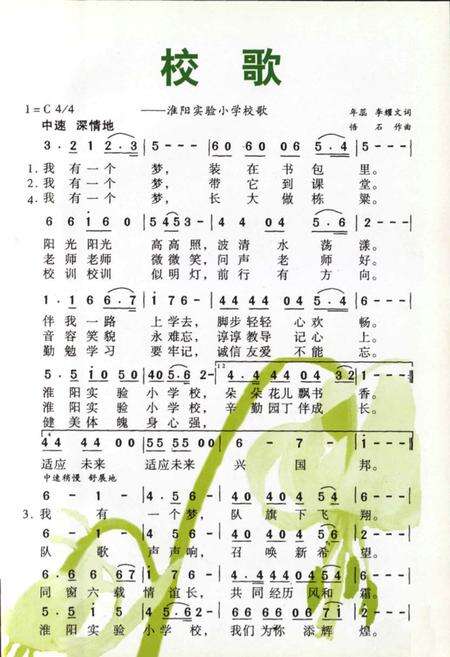 校歌
1=C 4/4 ——淮阳实验小学校歌 年蕊 李耀文词
中速 深情地 悟石作曲
3·2 1 2·3 | 5 - - - | 60 60 06 5·4 | 5 - - - |
1.我有一个梦，装在书包里。
2.我有一个梦，带它到课堂。
4.我有一个梦，长大做栋梁。
6 61 60 | 5453 - | 44 04 5·6 | 2 - - - |
阳光阳光高高照，波清水荡漾。
老师老师微微笑，问声老师好。
校训校训似明灯，前行有方向。
1·1 66 6·7 | i 76 - | 44 44 04 5·4 | 6 - - - |
伴我一路上学去，脚步轻轻心欢畅。
音容笑貌永难忘，谆谆教导记心上。
勤勉学习要牢记，诚信友爱不能忘。
5·5 10 50 | 40 5·6 2 - | 4·4 44 04 32 | 1 - - - :|
淮阳实验小学校，朵朵花儿飘书香。
淮阳实验小学校，辛勤园丁伴成长。
健美体魄身心强，
44 44 00 | 55 55 00 | 6 - 7 - | i - - - |
适应未来适应未来兴国邦。
中速稍慢 舒展地
6 - 1 - | 4·5 6 - | 40 40 4 56 | 5 - - - |
3.我有一个梦，队旗下飞翔。
6 - 1 - | 4·5 4 - | 40 40 4 56 | 2 - - - |
队歌声声响，召唤新希望。
6·6 6 67 | i 76 - | 4·4 44 04 5·4 | 6 - - - |
同窗六载情谊长，共同经历风和霜。
5·5 1 5 | 4·5 62 - | 66 66 06 71 | 2 - - - |
淮阳实验小学校，我们为你添辉煌。